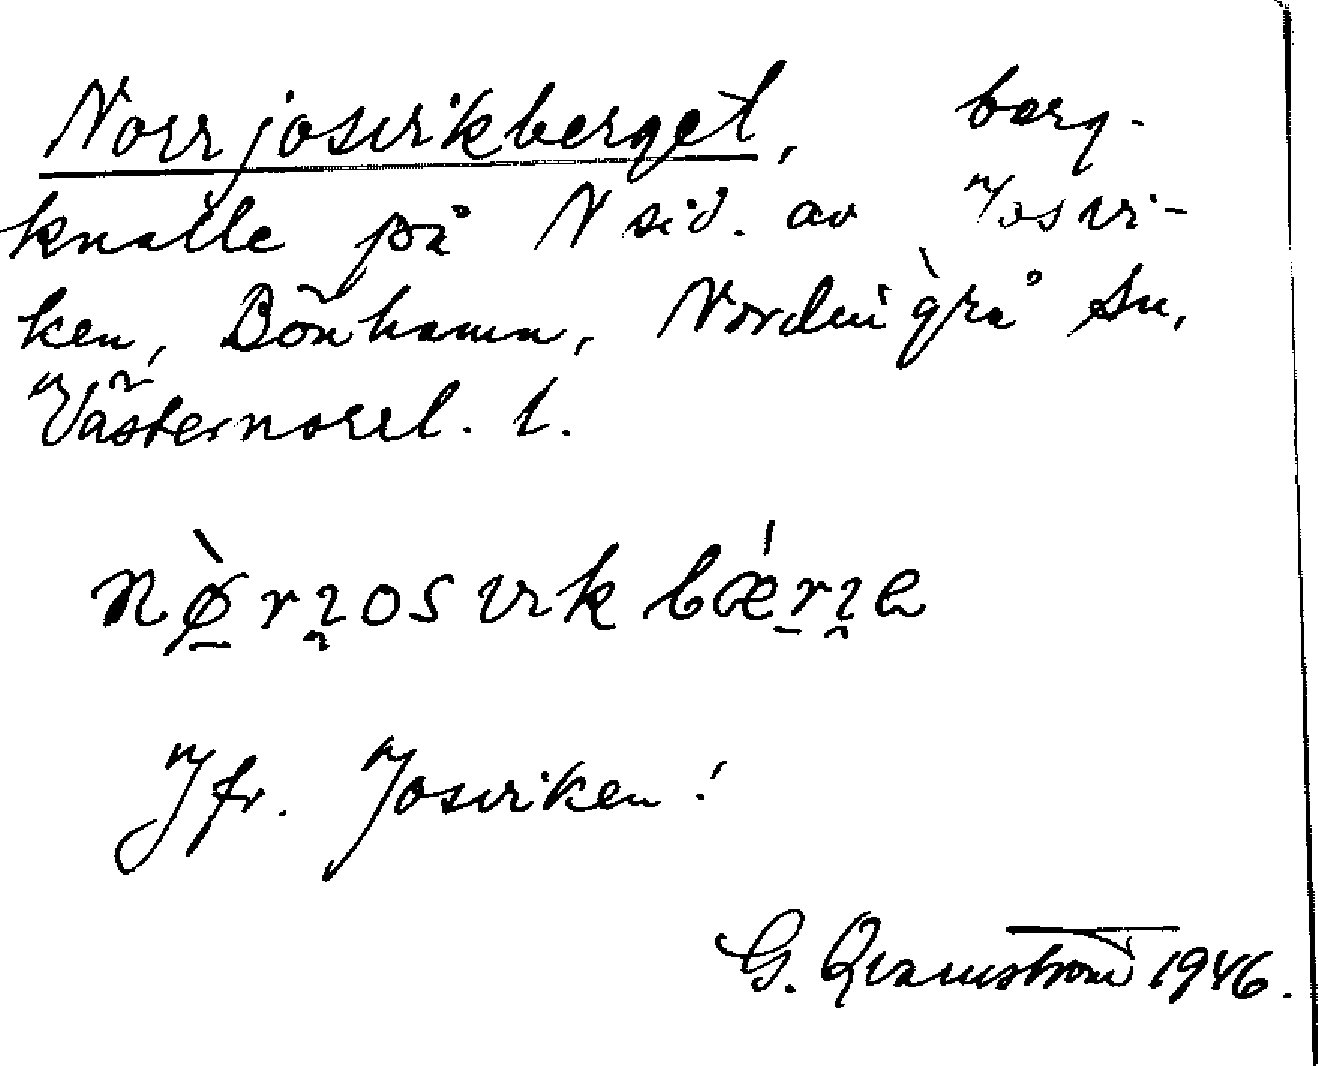 Norrjosvikberget, berg-
knalle på N sid. av Josvi-
ken, Bönhamn, Nordingrå sn,
Västernorrl. l.
nø̀rɪ̯osvikbǽrɪ̯e
Jfr. Josviken!
G. Qvarnström 1946.